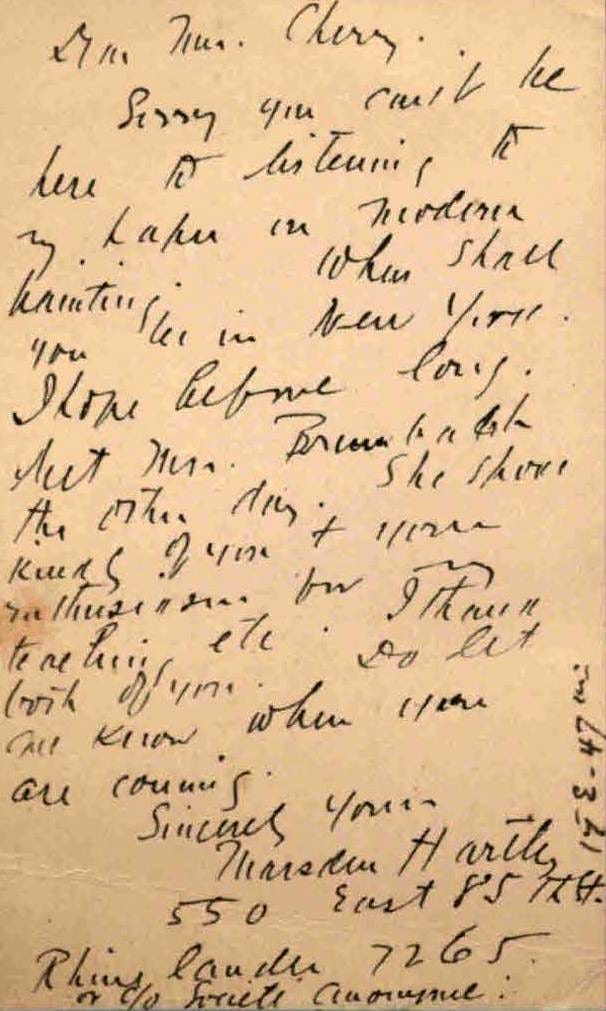 Dear Mrs. Cherry.
Sorry you can't be
here to listening to
my paper on modern
painting. When shall
you be in New York.
I hope before long.
Met Mrs. Brumback
the other day. She spoke
kindly of you & your
enthusiasm for my
teaching etc. I thank
both of you. Do let
me know when you
are coming.
Sincerely yours
Marsden Hartley
550 East 85 th St.
Rhinelander 7265.
or c/o Societe Anonyme.